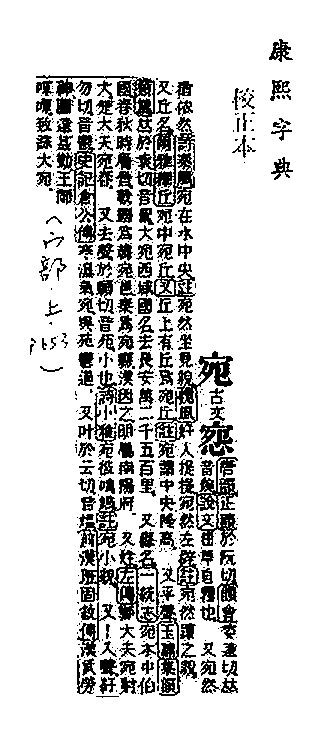 康熙字典
校正本
宛
古文
惌
唐韻正韻於阮切韻會委遠切𠀤
音婉說文屈草自覆也 又宛然
猶依然詩秦風宛在水中央註宛然坐見貌魏風好人提提宛然左辟註宛然讓之貌
又丘名爾雅釋丘宛中宛丘又丘上有丘爲宛丘註宛謂中央隆高 又平聲玉篇集韻
韻會𠀤於袁切音鴛大宛西域國名去長安萬二千五百里 又縣名一統志宛本申伯
國春秋時屬晉戰國爲韓宛邑秦爲宛縣漢因之明屬南陽府 又姓左傳鄭大夫宛射
犬楚大夫宛春 又去聲於願切音苑小也詩小雅宛彼鳴鳩註宛小貌 又入聲紆
勿切音鬱史記倉公傳寒濕氣宛與菀鬱通 又叶於云切音熅前漢班固敘傳漢武勞
神圖遠甚勤王師
嘽嘽致誅大宛
(宀部・上・P253)